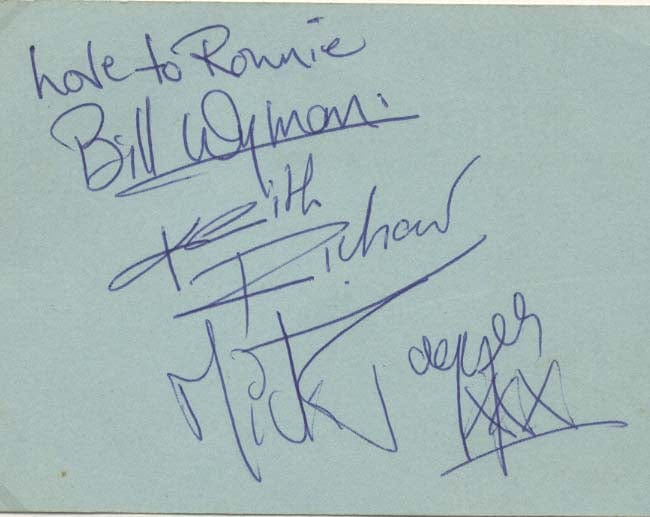 love to Ronnie
Bill Wyman.
Keith
Richard
Mick Jagger
XXX